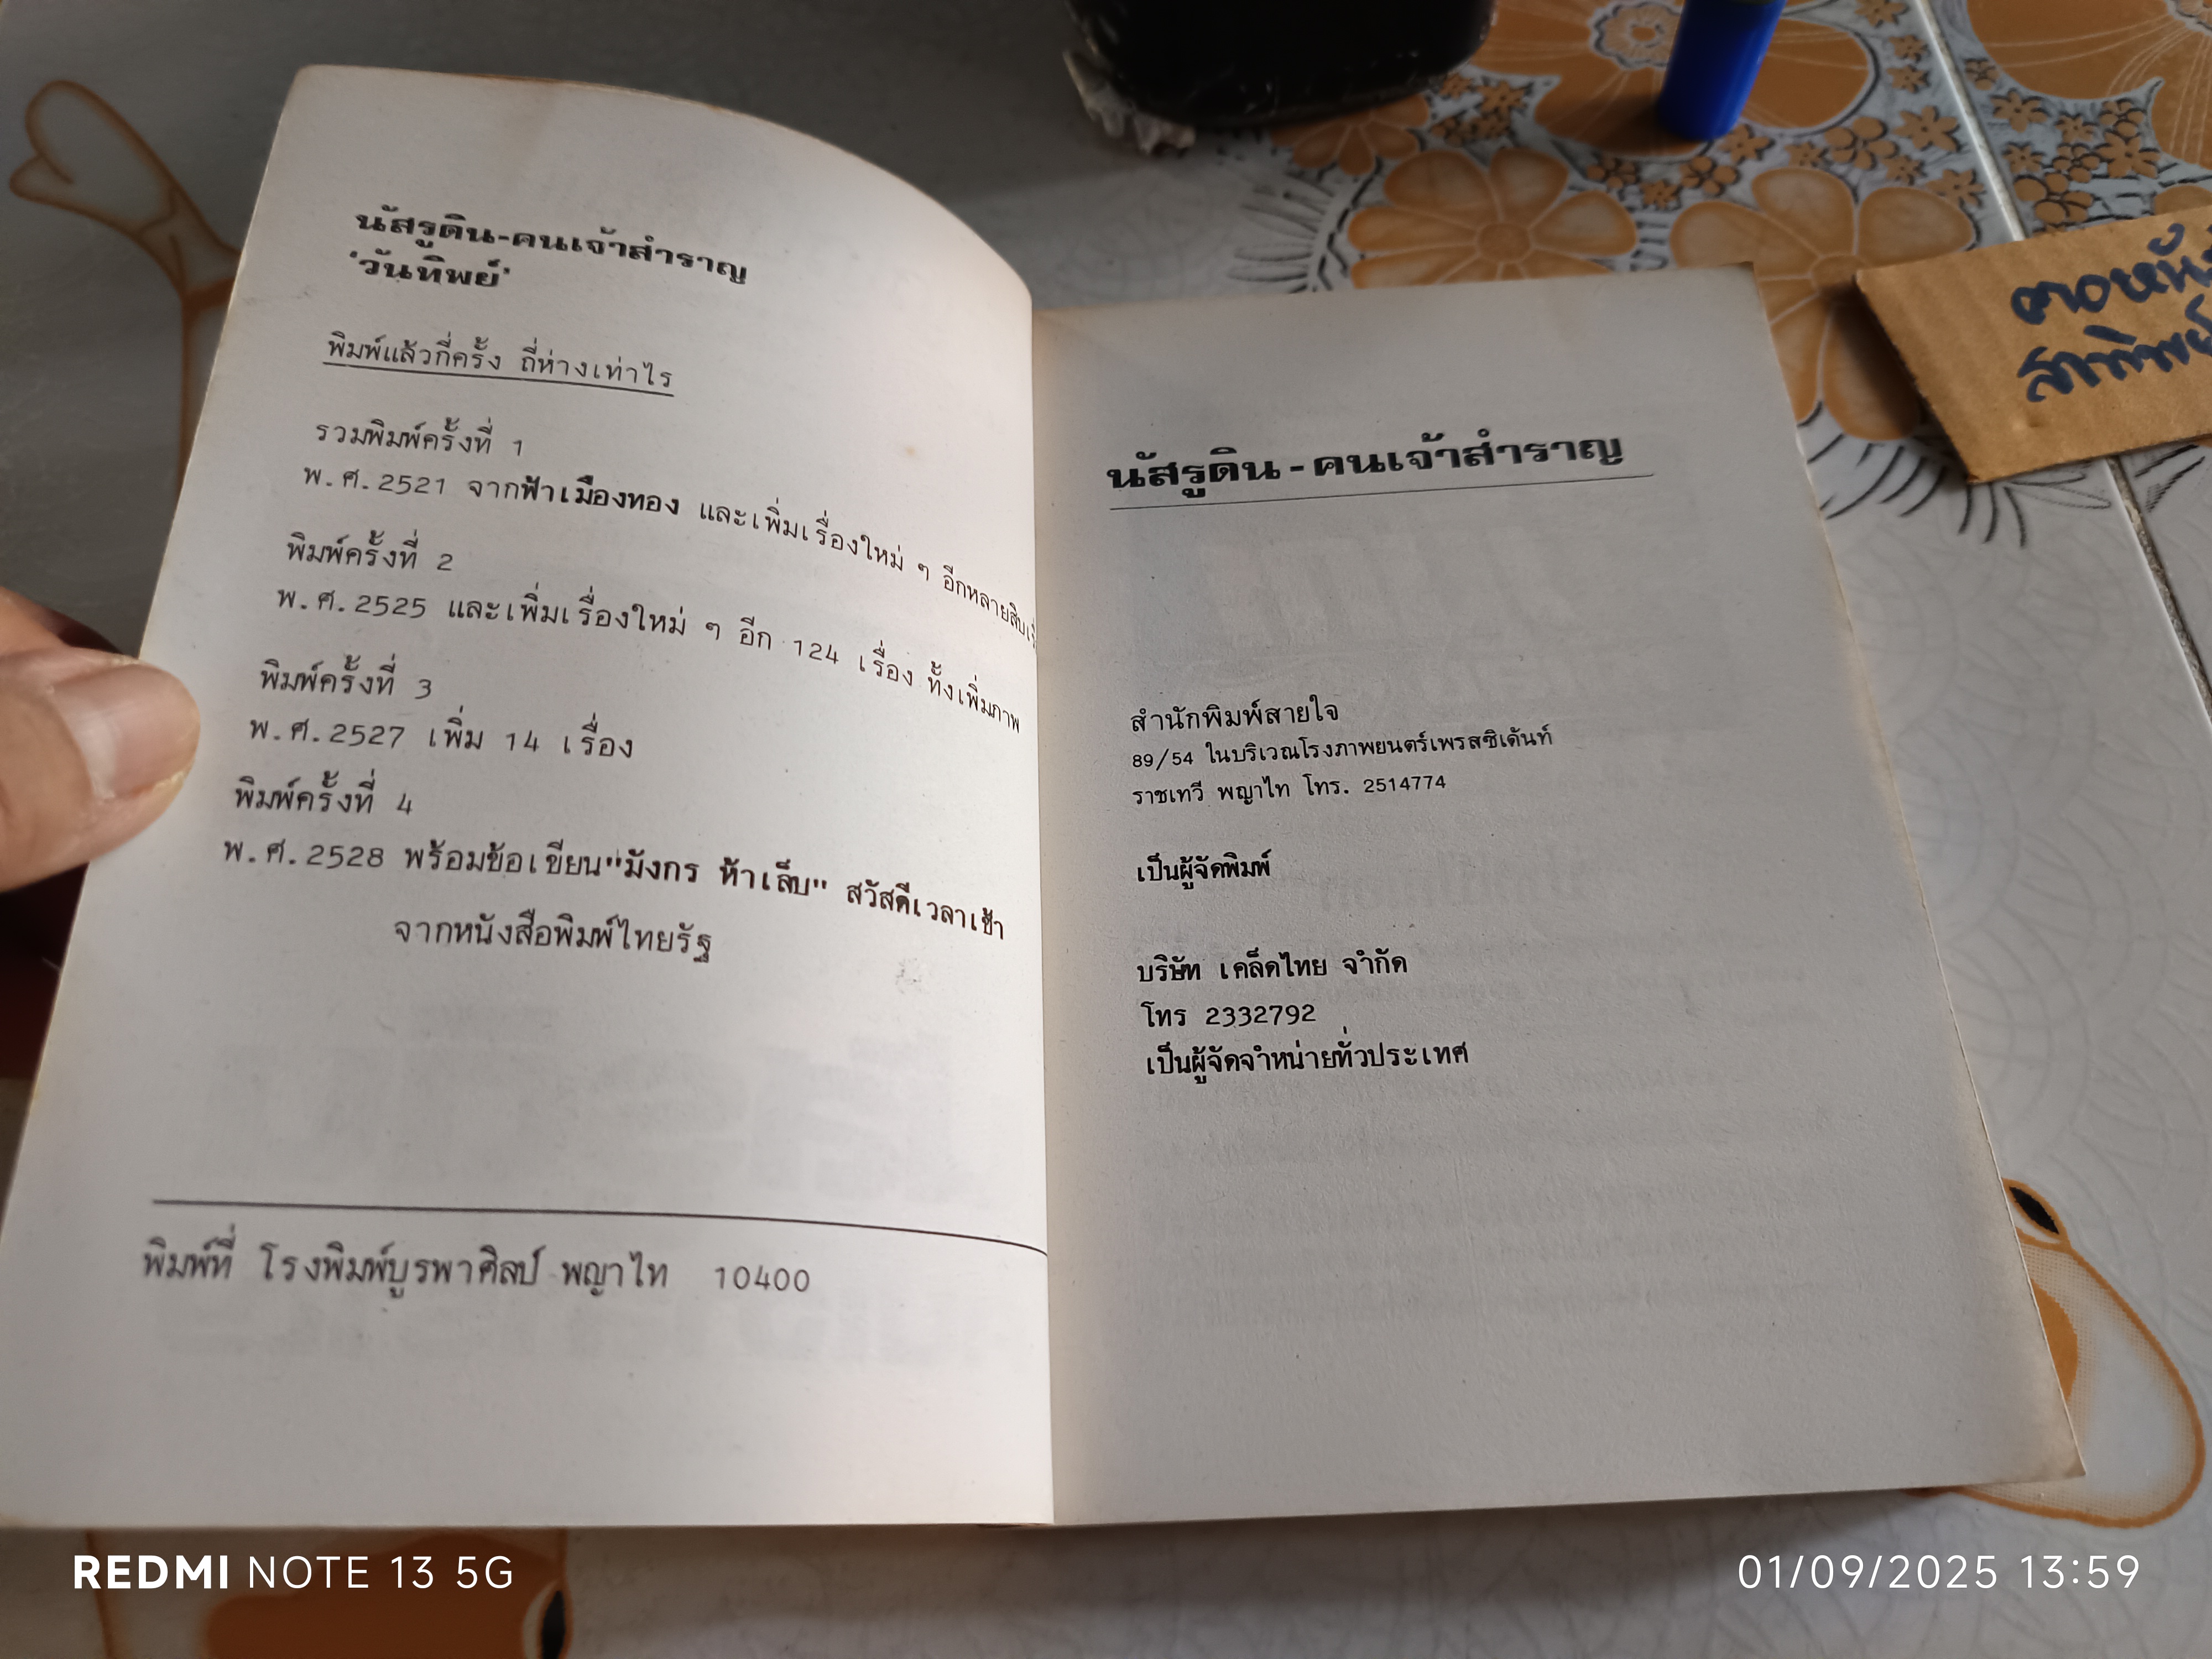 นัสรูดิน-คนเจ้าสำราญ
'วันทิพย์'
พิมพ์แล้วกี่ครั้ง ถี่ห่างเท่าไร
รวมพิมพ์ครั้งที่ 1
พ.ศ.2521 จากฟ้าเมืองทอง และเพิ่มเรื่องใหม่ ๆ อีกหลายสิบ
พิมพ์ครั้งที่ 2
พ.ศ.2525 และเพิ่มเรื่องใหม่ ๆ อีก 124 เรื่อง ทั้งเพิ่มภาพ
พิมพ์ครั้งที่ 3
พ.ศ.2527 เพิ่ม 14 เรื่อง
พิมพ์ครั้งที่ 4
พ.ศ.2528 พร้อมข้อเขียน"มังกร ห้าเล็บ" สวัสดีเวลาเช้า
จากหนังสือพิมพ์ไทยรัฐ
พิมพ์ที่ โรงพิมพ์บูรพาศิลป์ พญาไท 10400
นัสรูดิน - คนเจ้าสำราญ
สำนักพิมพ์สายใจ
89/54 ในบริเวณโรงภาพยนตร์เพรสซิเด้นท์
ราชเทวี พญาไท โทร. 2514774
เป็นผู้จัดพิมพ์
บริษัท เคล็ดไทย จำกัด
โทร 2332792
เป็นผู้จัดจำหน่ายทั่วประเทศ
REDMI NOTE 13 5G
01/09/2025 13:59